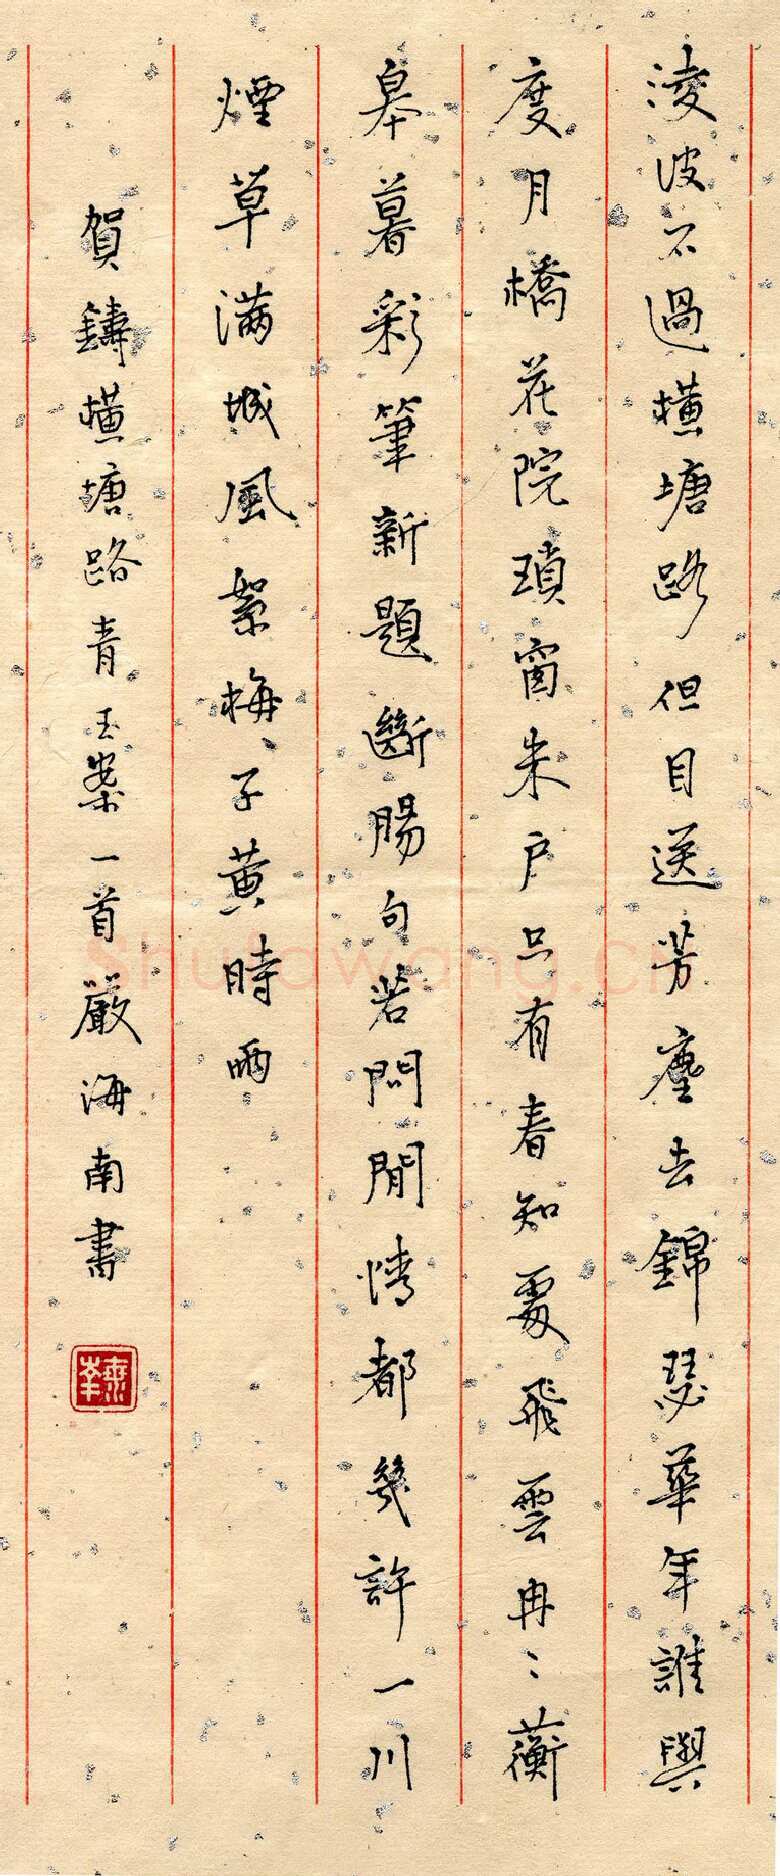 淩波不過橫塘路但目送芳塵去錦瑟華年誰與
度月橋花院瑣窗朱戶只有春知處飛雲冉〻蘅
皋暮彩筆新題斷腸句若問閒情都幾許一川
煙草滿城風絮梅子黃時雨
賀鑄橫塘路青玉案一首嚴海南書
shufawang.cn